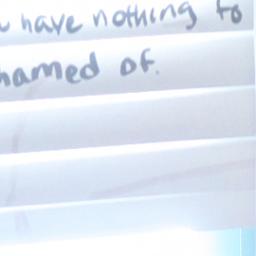 have nothing to
hamed of.